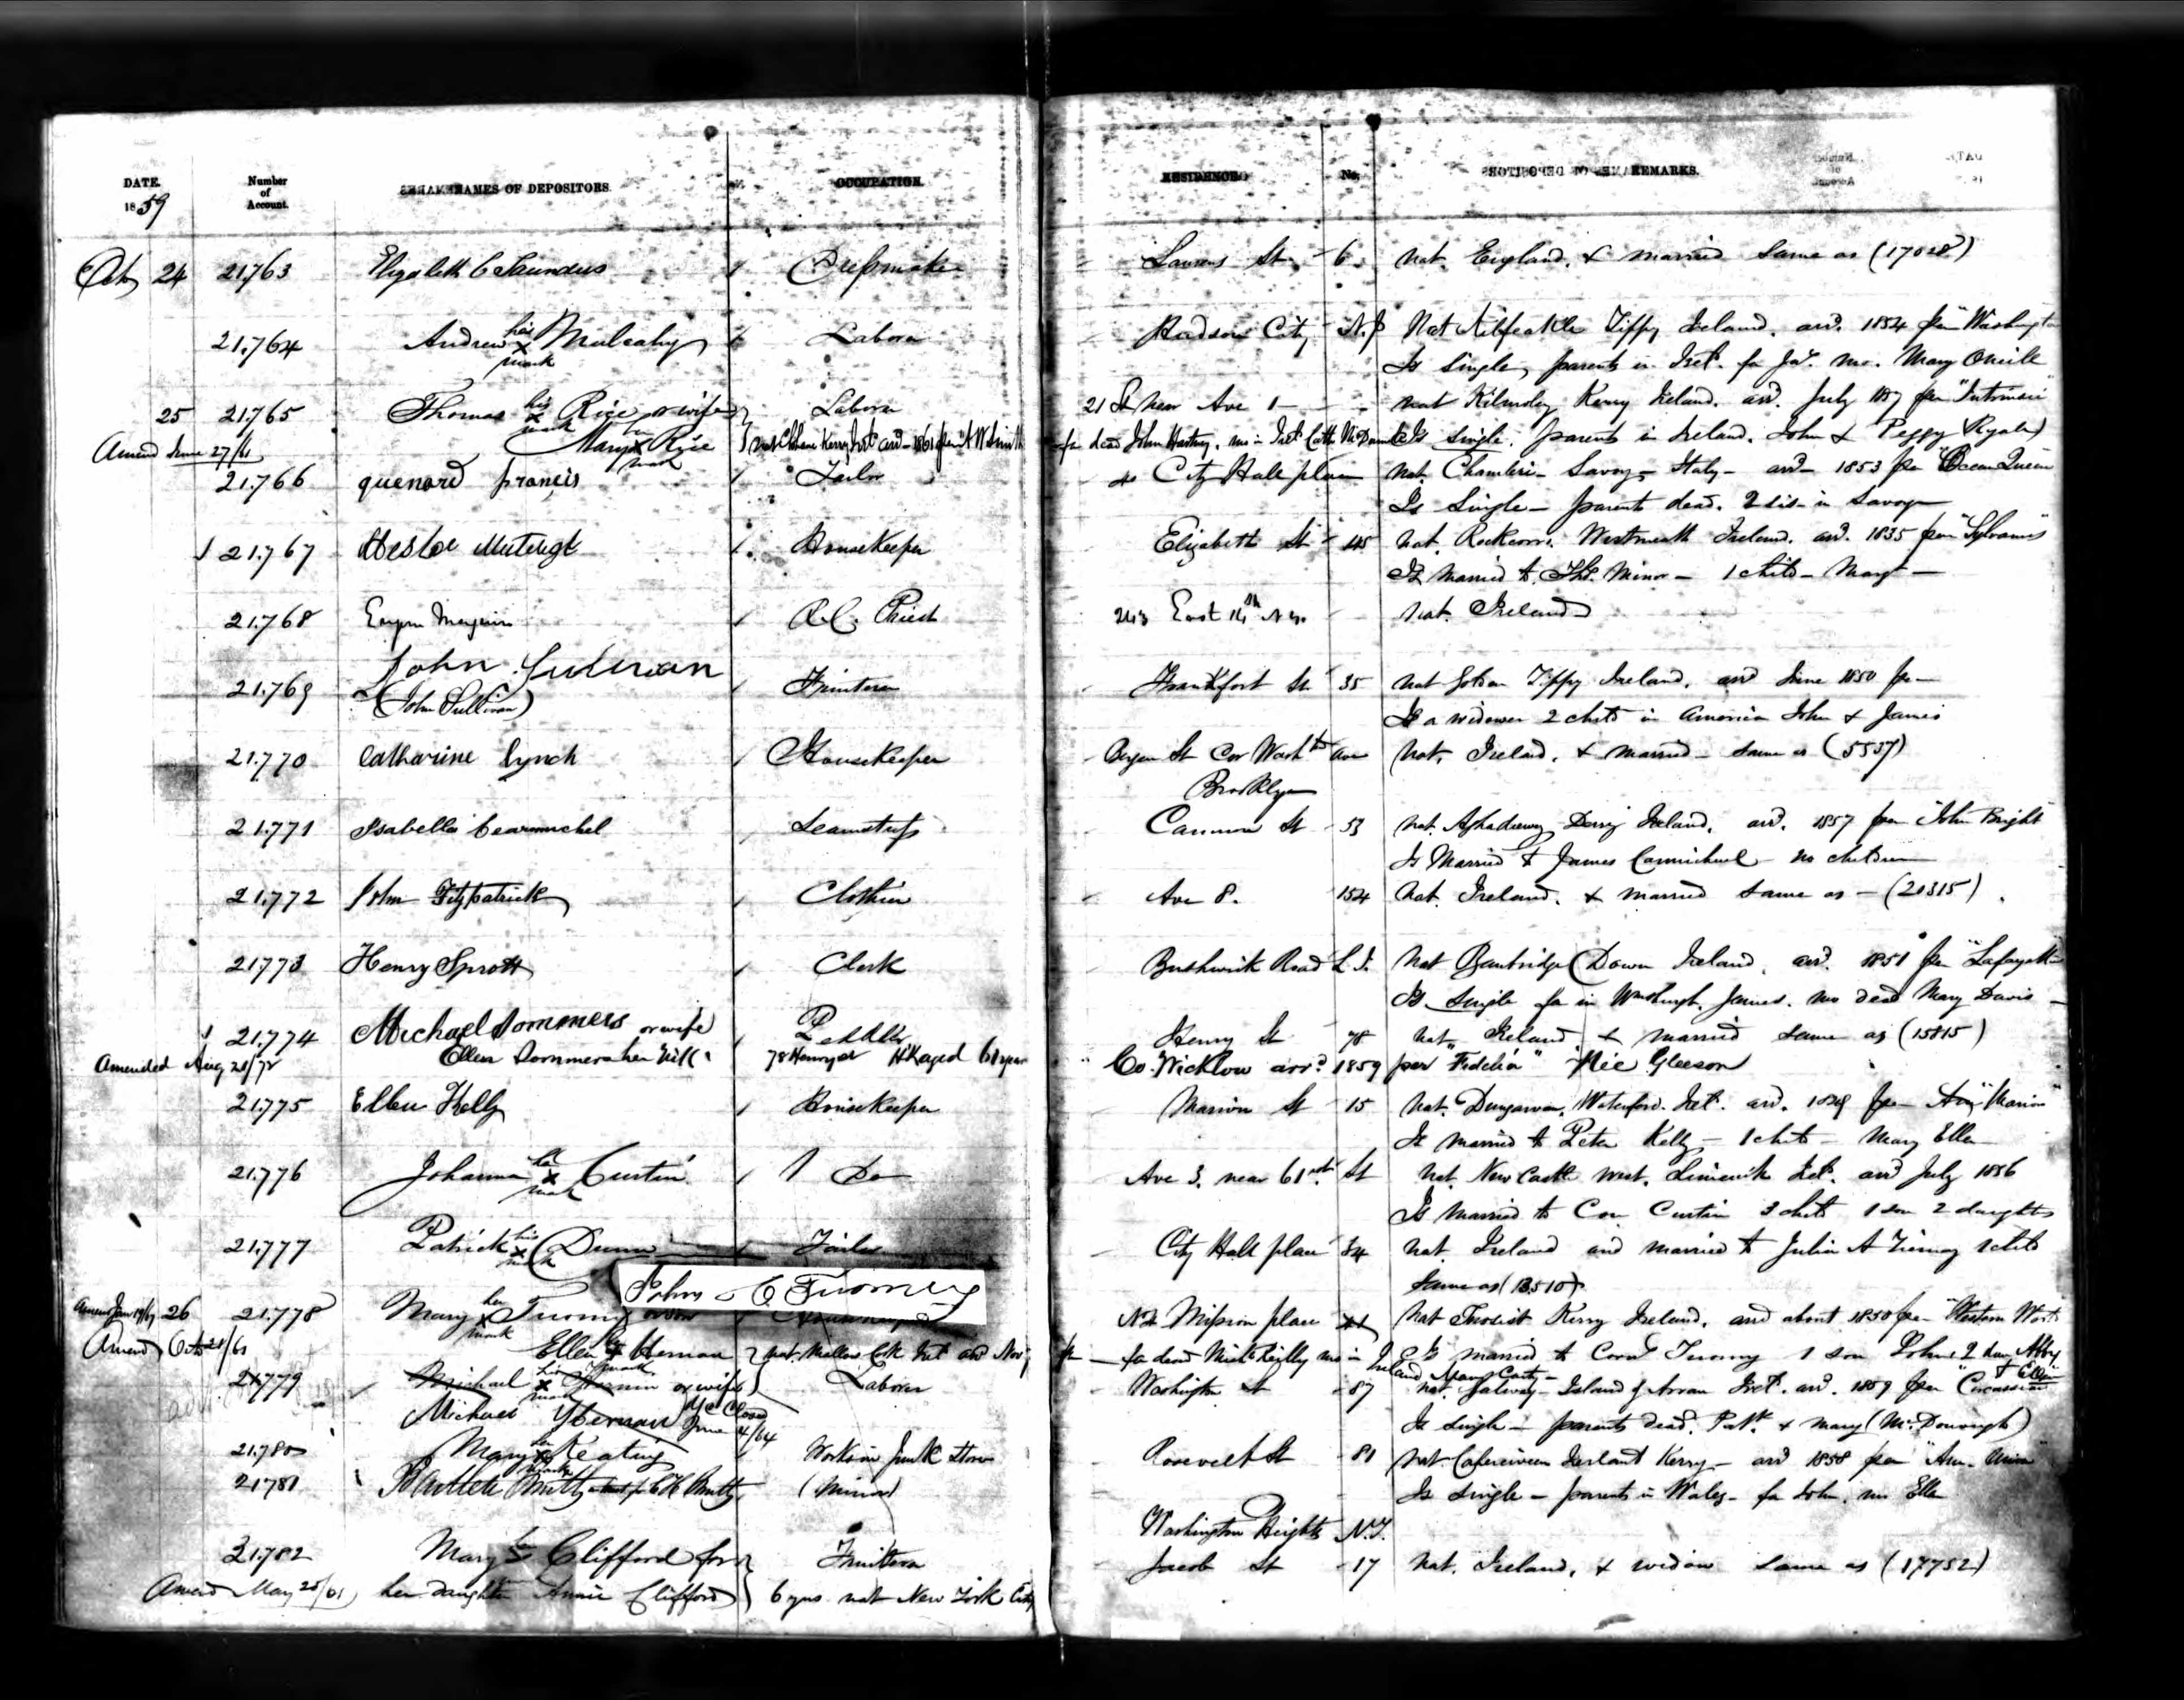 DATE. Number of Account. NAMES OF DEPOSITORS. OCCUPATION. RESIDENCE No. REMARKS.
1859
Oct 24 21.763 Elizabeth C Saunders Dressmaker Laurens St 6 nat. England. & married same as (17028)
21.764 Andrew his x mark Mulcahy Laborer Hudson City N.J Nat Kilfeakle Tippy Ireland. arr. 1854 per "Washington
Is single, parents in Irel. fa Jas. mo. Mary Oneill
25 21.765 Thomas his x mark Rice or wife Laborer 21 St near Ave 1 nat Kerry Ireland. arr. July 1857 per
Amend June 27/61 Mary her x mark Rice nat Kerry Irel. arr 1861 per fa dead John mo in Irel. Cath Is single. parents in Ireland. John & Peggy (Ryale)
21.766 quenard francis Tailor City Hall place nat. Savoy Italy arr 1853 per "Ocean Queen
Is Single parents dead. 2 sis in Savoy
21.767 Housekeeper Elizabeth St 145 nat. Westmeath Ireland. arr. 1835 per "Sylvanus"
Is married to Ths. Minor 1 child Mary
21.768 Eugene Maguire R.C. Priest 243 East 14th N.Y. nat. Ireland
John Sullivan
21.769 (John Sullivan) Fruiterer Frankfort St 35 nat Golden Tippy Ireland. arr June 1850 per
Is a widower 2 child in America John & James
21.770 Catharine Lynch Housekeeper Bergen St Cor Washtn Ave nat. Ireland. & married same as (5537)
Brooklyn
21.771 Isabella Cearmichel Seamstress Cannon St 53 nat. Aghadowey Derry Ireland. arr. 1857 per "John Bright"
Is Married to James Carmichael no children
21.772 John Fitzpatrick Clothier Ave 8. 154 nat. Ireland. & married same as (20315)
21773 Henry Sprott Clerk Bushwick Road L.I. Nat Banbridge Down Ireland. arr. 1851 per "Lafayette"
Is single fa in James. mo dead Mary Davis
21.774 Michael Sommers or wife Peddler Henry St 78 nat Ireland & married same as (15815)
Amended Aug 28/72 Ellen Sommers her 78 Henry st HK aged 61 years Co. Wicklow arrd 1859 per "Fidelia" Née Gleeson
21.775 Ellen Kelly Housekeeper Marion St 15 nat. Dungarvan. Waterford. Irel. arr. 1849 per "Marion"
Is married to Peter Kelly 1 child Mary Ellen
21.776 Johanna her x mark Curtin Do Ave 3. near 61st St nat. New Castle West. Limerick Irel. arr July 1856
Is married to Con Curtin 3 child 1 son 2 daughts
21.777 Patrick his x mark Dunn Tailor City Hall place 34 nat. Ireland and married to Julia A Tierney 1 child
same as (13.510)
John C Tuomey
26 21.778 Mary her x mark Tuomy or son Mission place nat Tuosist Kerry Ireland. arr about 1850 per "Western World
Amend Oct 21/61 Ellen her x mark Hernan nat. Mallow Cork Irel arr Nov fa dead Reilly mo in Ireland Mary Is married to Corns Tuomy 1 son John. 2 dau Abby & Ellen
21779 Michael his x mark or wife Laborer Washington St 87 nat. Galway Island of Arran Irel. arr. 1859 per Circassian
Michael Hernan a/c Closed June 4/64 Is single parents dead. Patk. & Mary (McDonough)
21.780 Mary her x mark Keating Works in Junk Store Roosevelt St 81 nat. Caherciveen Kerry arr 1858 per "Am. Union"
21781 (Minor) Is single parents in Wales fa John. mo Ellen
Washington Heights N.Y.
21.782 Mary her x Clifford for Fruiterer Jacob St 17 nat. Ireland. & widow same as (17752)
Amend May 25/61 her daughter Annie Clifford 6 yrs nat New York City